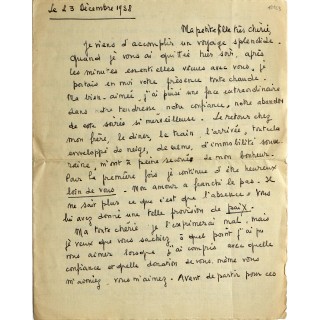 Le 23 Décembre 1938
Ma petite fille très chérie,
Je viens d'accomplir un voyage splendide.
Quand je vous ai quittée hier soir, après
les minutes essentielles vécues avec vous, je
portais en moi votre présence toute chaude.
Ma bien-aimée, j'ai puisé une force extraordinaire
dans votre tendresse, votre confiance, votre abandon
de cette soirée si merveilleuse. Le retour chez
mon frère, le dîner, le train, l'arrivée,
enveloppé de neige, de calme, d'immobilité
m'ont à peine de mon bonheur.
Pour la première fois je continue d'être heureux
loin de vous. Mon amour a franchi le pas. Il
ne sait plus ce que c'est que l'absence. Vous
lui avez donné une telle provision de paix.
Ma toute chérie je l'exprimerai mal, mais
je veux que vous sachiez à quel point j'ai pu
vous aimer lorsque j'ai compris avec quelle
confiance et quelle donation de vous, même vous
m'aimiez, vous m'aimez. Avant de partir pour ces